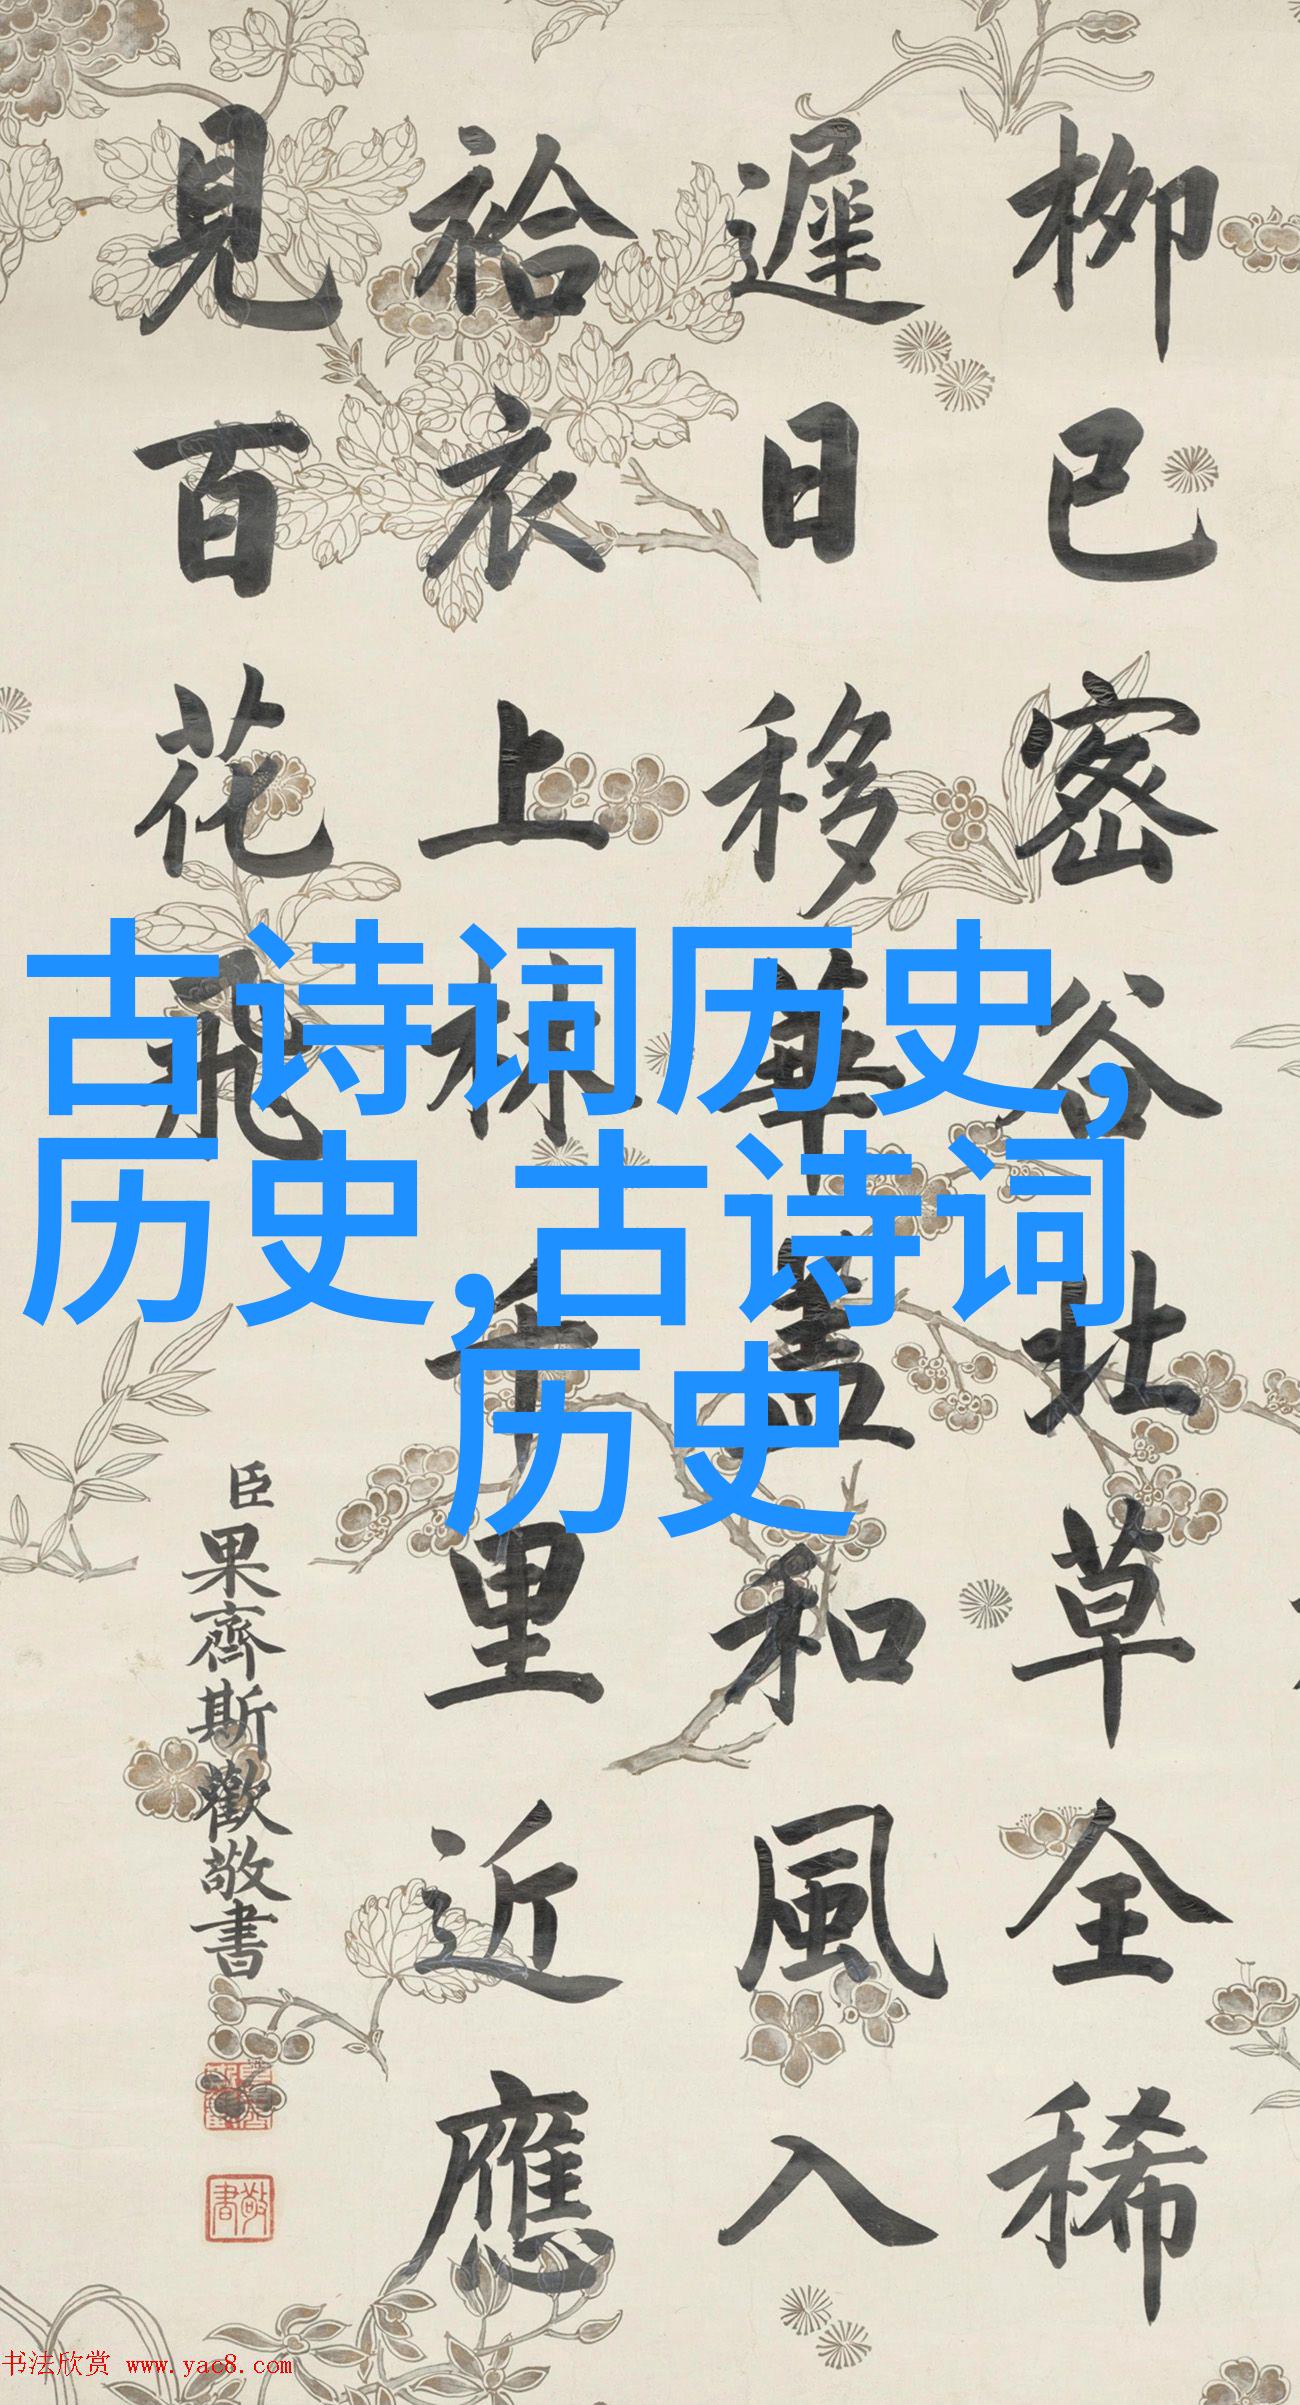 柳已密谷北草全稀
遲日移華蓋和風入
袷衣上林千里近應
見百花飛
臣果齊斯歡敬書
敬書
古诗词历史,
历史,古诗词
历史
书法欣赏 www.yac8.com